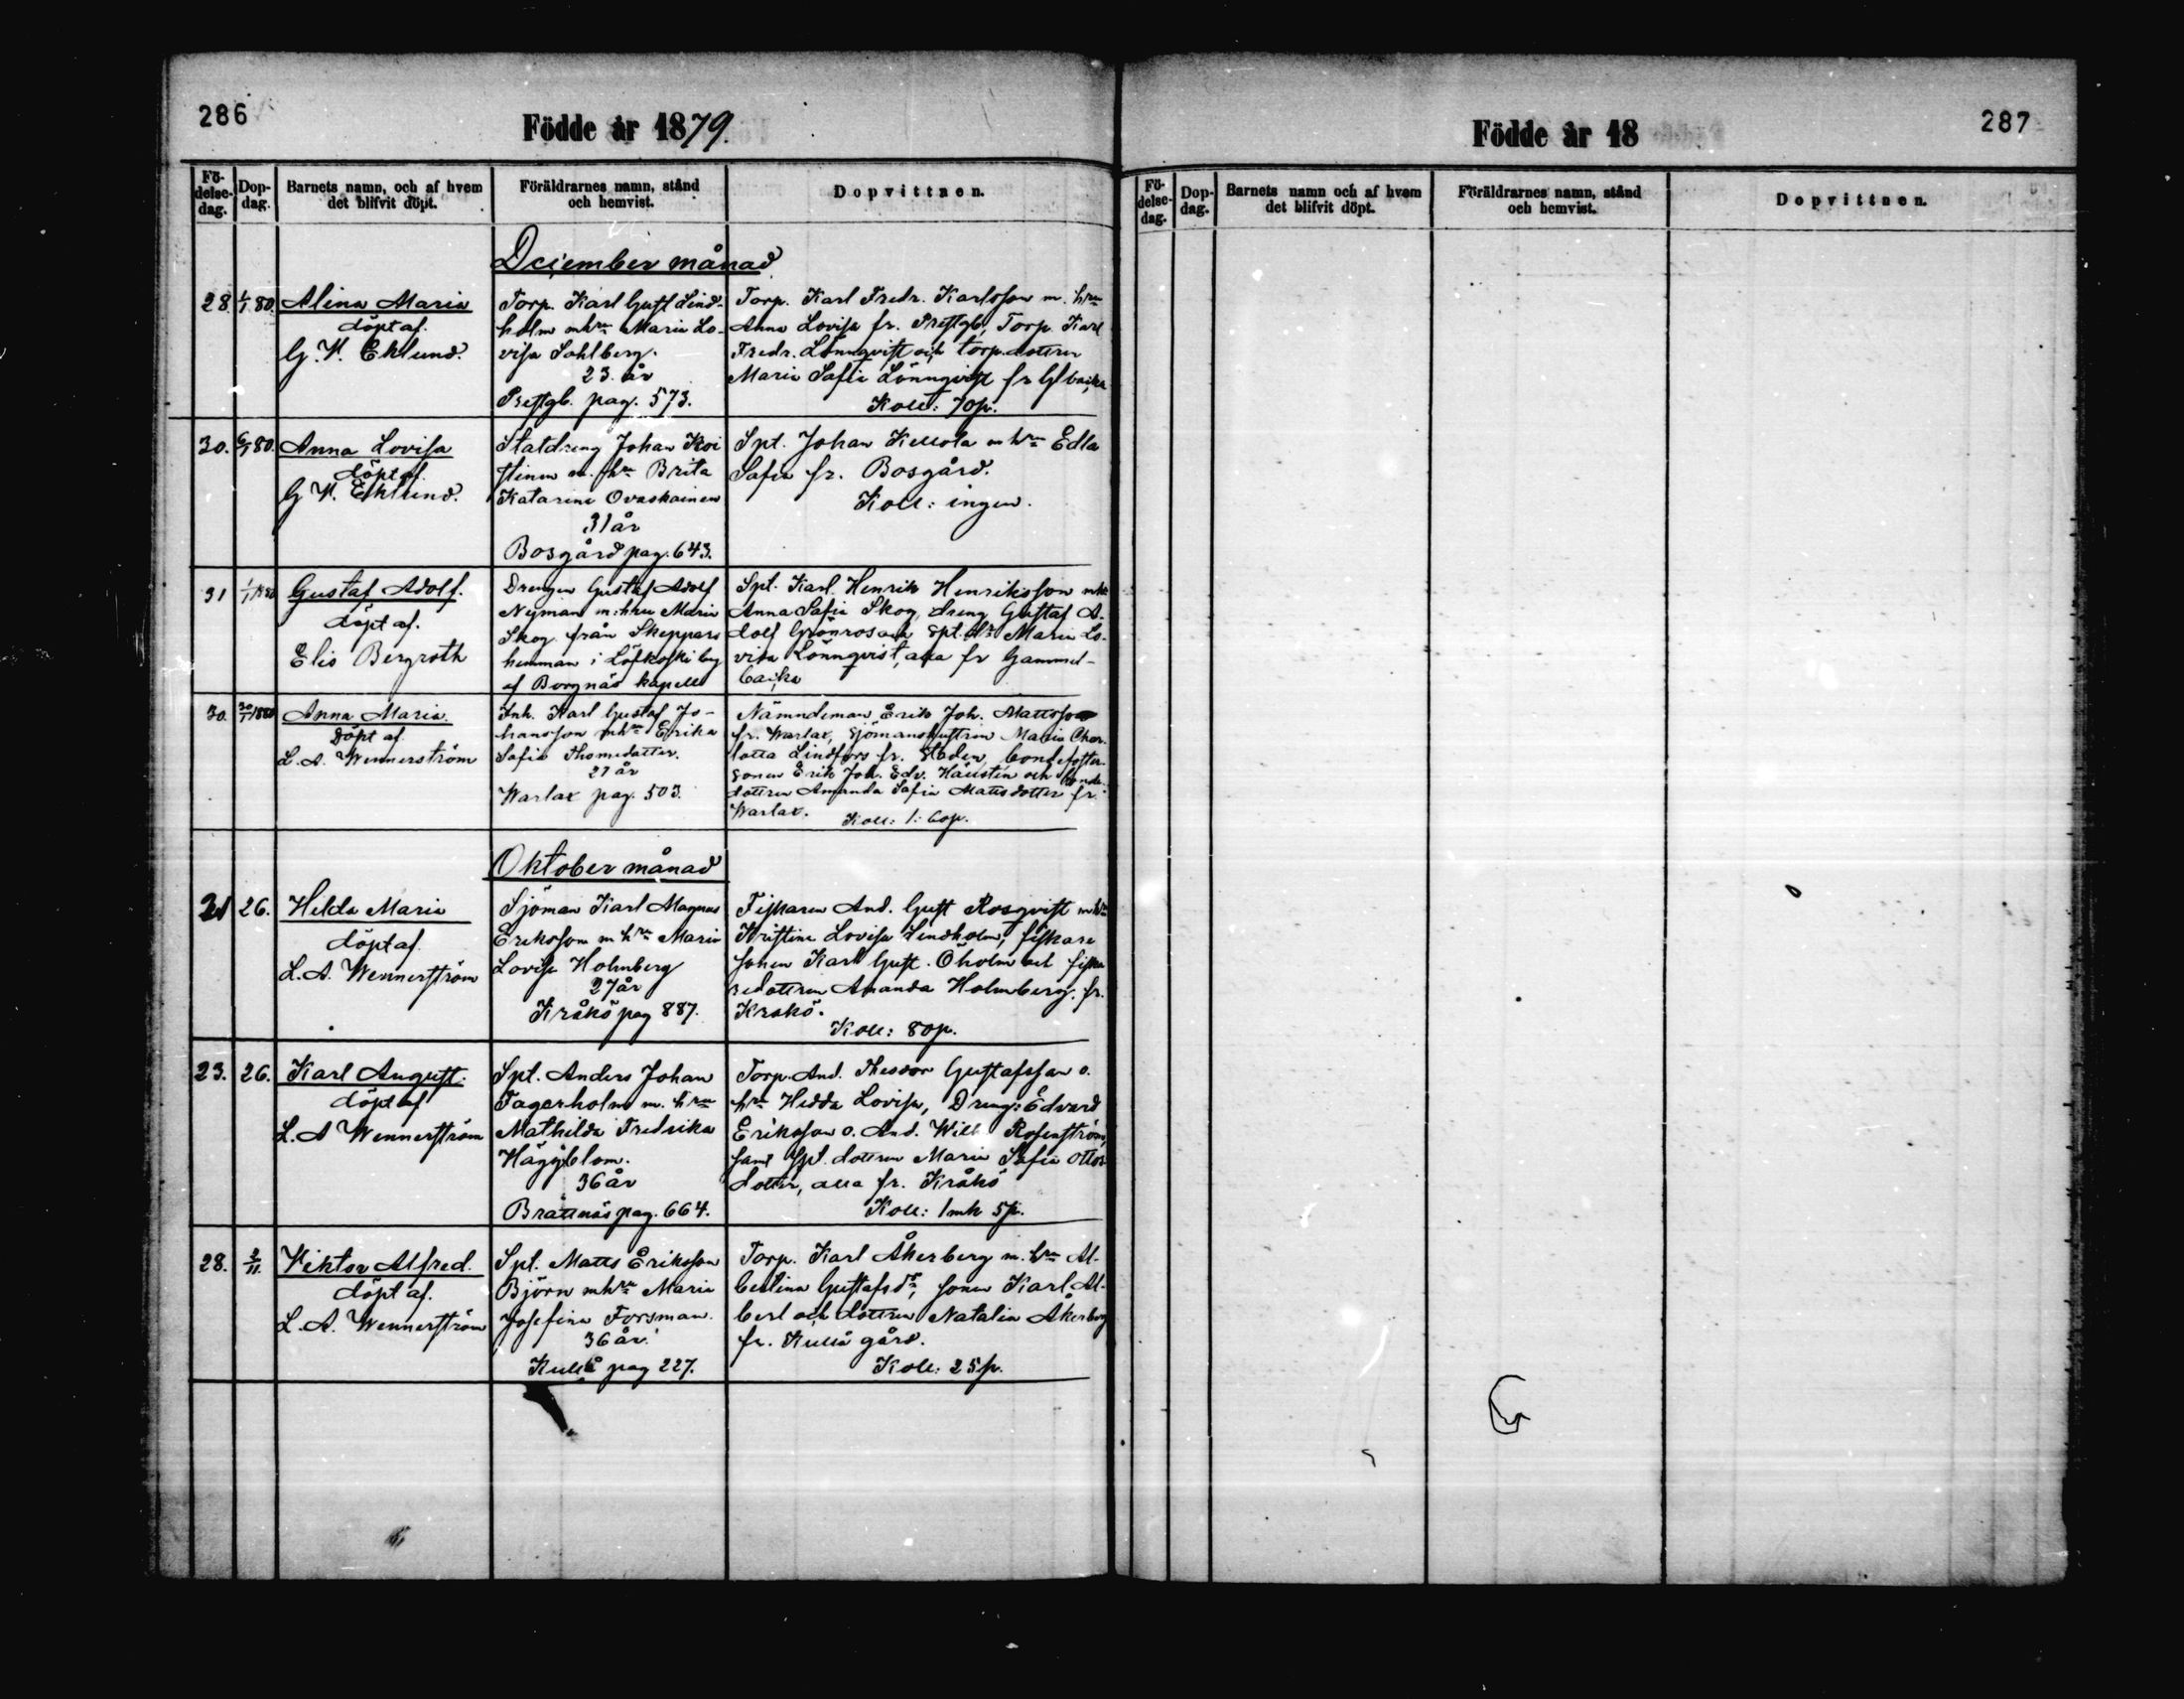 286
Födde år 1879.
Fö-
delse-
dag.
Dop-
dag.
Barnets namn, och af hvem
det blifvit döpt.
Föräldrarnes namn, stånd
och hemvist.
Dopvittnen.
December månad
28. 1/1 80.
Alina Maria
döpt af.
G. W. Eklund.
Torp. Karl Gust Lind-
holm mhru Maria Lo-
visa Sahlberg.
23. år
Prestgb. pag. 573.
Torp. Karl Fredr. Karlsson m. hru
Anna Lovisa fr. Prestgb, Torp. Karl
Fredr. Lönnqvist och torp. dottren
Maria Safia Lönnqvist fr Gl backa
Koll: 70p.
30. 6/1 80.
Anna Lovisa
döpt af.
G W. Eklund.
Statdreng Johan Koi
stinen m. hru Brita
Katarina Ovaskainen
31 år
Bosgård pag. 643.
Spt. Johan Kellola m hru Edla
Safia fr. Bosgård.
Koll: ingen.
31 1/1 1880
Gustaf Adolf.
döpt af.
Elis Bergroth
Drengen Gustaf Adolf
Nyman m: hru Maria
Skog från Skeppars
hemman i Löfkoski by
af Borgnäs kapell
Spt. Karl Henrik Henriksson mhr
Anna Safia Skog, dreng Gustaf A-
dolf Grönroos och Spt. dr Maria Lo-
visa Lönnqvist, alla fr Gammel-
backa
30. 20/1 1880
Anna Maria.
Döpt af
L. A. Wennerström
Inh. Karl Gustaf Jo-
hansson mhru Erika
Safia Thomedotter.
27 år
Warlax pag. 503.
Nämndeman Erik Joh. Mattsson
fr. Warlax, Sjömanshustrun Maria Char-
lotta Lindfors fr. Staden, bondefoster-
sonen Erik Joh. Edv. Hällstén och bonde-
dottren Amanda Safia Mattsdotter fr.
Warlax.
Koll: 1: 60p.
Oktober månad
21 26.
Hilda Maria
döpt af.
L. A. Wennerström
Sjöman Karl Magnus
Eriksson m hru Maria
Lovisa Holmberg
27 år
Kråkö pag 887.
Fiskaren And. Gust Rosqvist m hru
Kristina Lovisa Lindholm, fiskare
sonen Karl Gust. Öholm och fiska
redottren Amanda Holmberg. fr.
Kråkö.
Koll: 80p.
23. 26.
Karl August.
döpt af
L. A Wennerström
Spt. Anders Johan
Fagerholm m. hru
Mathilda Fredrika
Häggblom.
36 år
Brattnäs pag. 664.
Torp. And. Theodor Gustafsson o.
hru Hedda Lovisa, Dreng: Edvard
Eriksson o. And. Wilh Rosenström,
samt Spt. dottren Maria Safia Ottos
dotter, alla fr. Kråkö
Koll: 1mk 5p.
28. 2/11.
Viktor Alfred.
döpt af.
L. A. Wennerström
Spt. Matts Eriksson
Björn mhru Maria
Josefina Forsman.
36 år.
Kullå pag 227.
Torp. Karl Åkerberg m. hru Al-
bertina Gustafsdr, sonen Karl Al-
bert och dottren Natalia Åkerberg
fr. Kullå gård.
Koll: 25p.
Födde år 18
287
Fö-
delse-
dag.
Dop-
dag.
Barnets namn och af hvem
det blifvit döpt.
Föräldrarnes namn, stånd
och hemvist.
Dopvittnen.